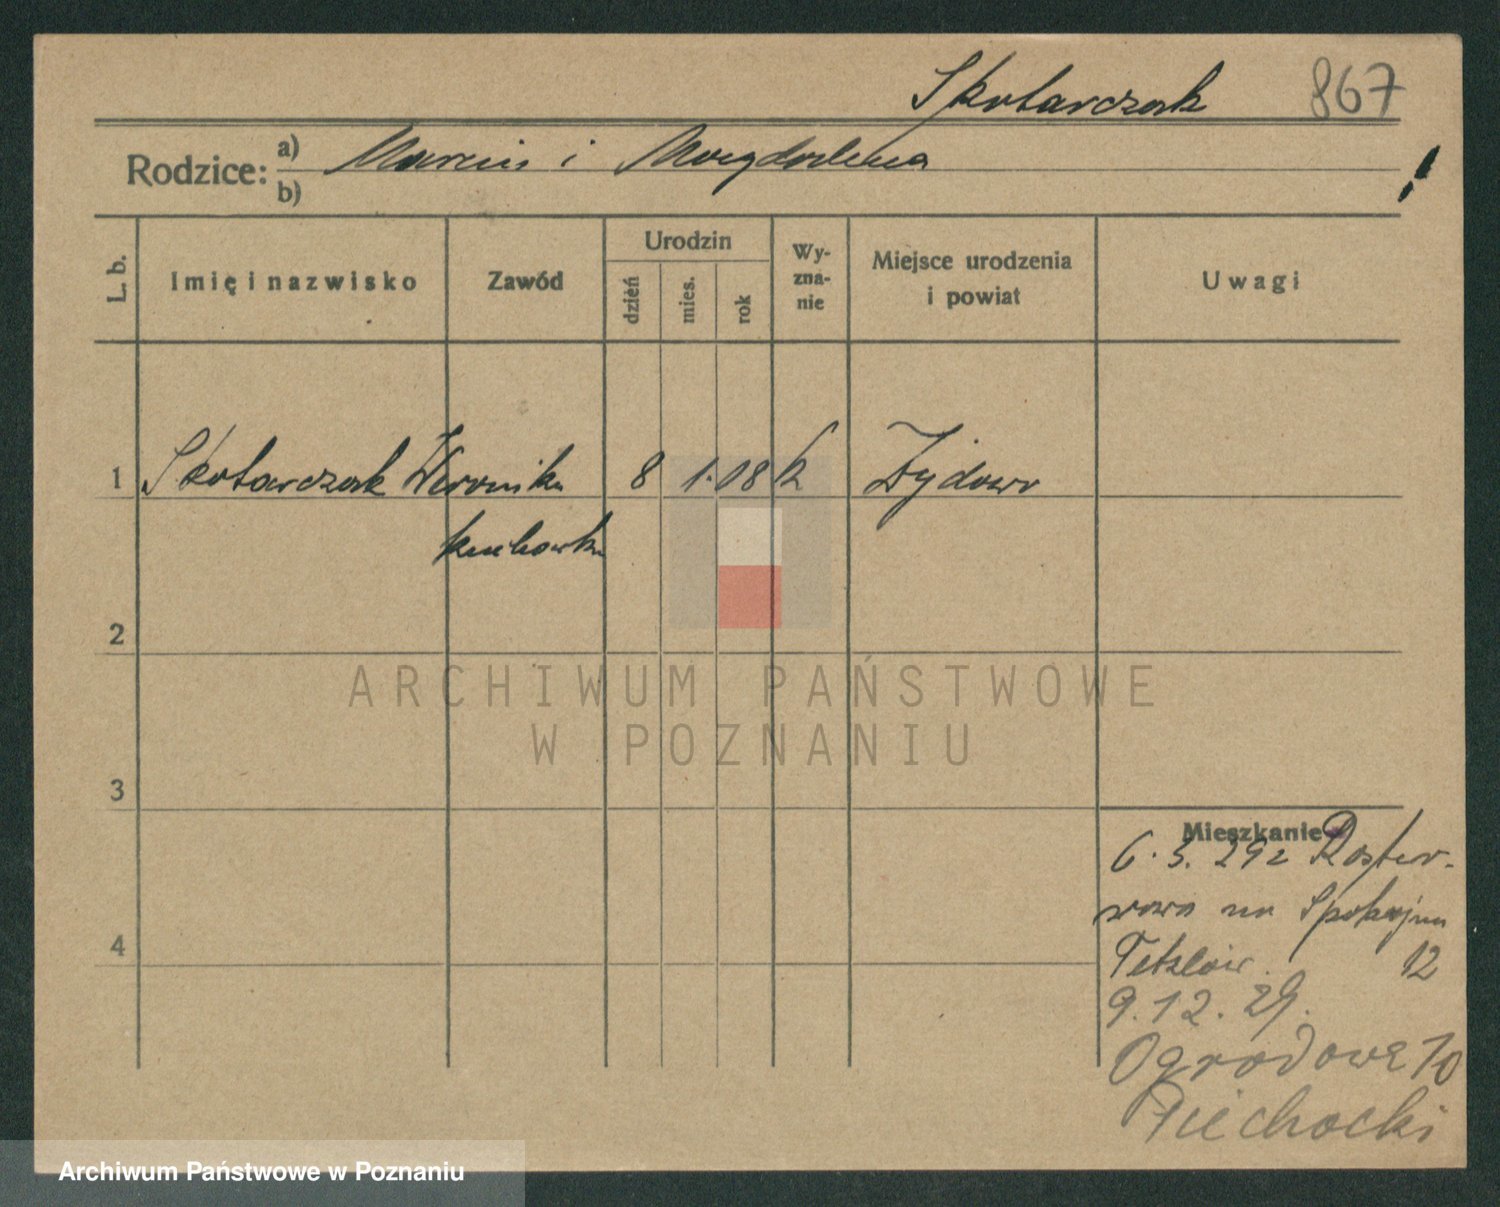 Skotarczak 867
Rodzice: a) Marcin i Magdalena
b)
!
L. b.
Imię i nazwisko
Zawód
Urodzin
dzień
mies.
rok
Wy-
zna-
nie
Miejsce urodzenia
i powiat
Uwagi
1 Skotarczak Weronika 8 1. 08 k Żydowo
kucharka
2
ARCHIWUM PAŃSTWOWE
W POZNANIU
3
Mieszkanie
6. 3. 29
Spokojna
12
9. 12. 29.
Ogrodowa 10
Piechocki
4
Archiwum Państwowe w Poznaniu